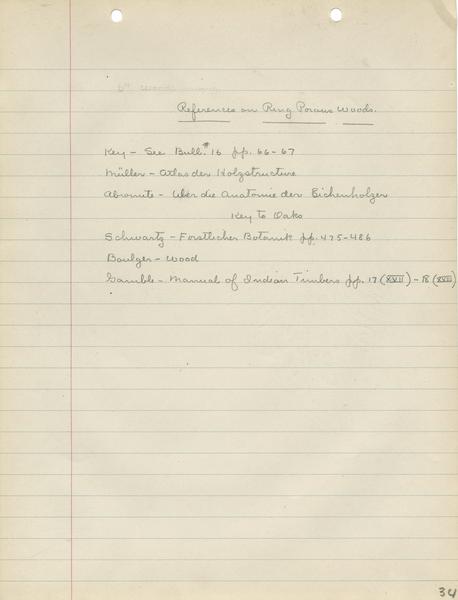 References on Ring Porous Woods.
Key - See Bull.# 16 pp. 66-67
Müller - Atlas der Holzstructure
Abromite - Uber die Anatomie der Eichenholzer
Key to Oaks
Schwartz - Forstlicher Botanik pp. 475-486
Boulger - Wood
Gamble - Manual of Indian Timbers pp. 17 (XVII) - 18 (XVIII)
34